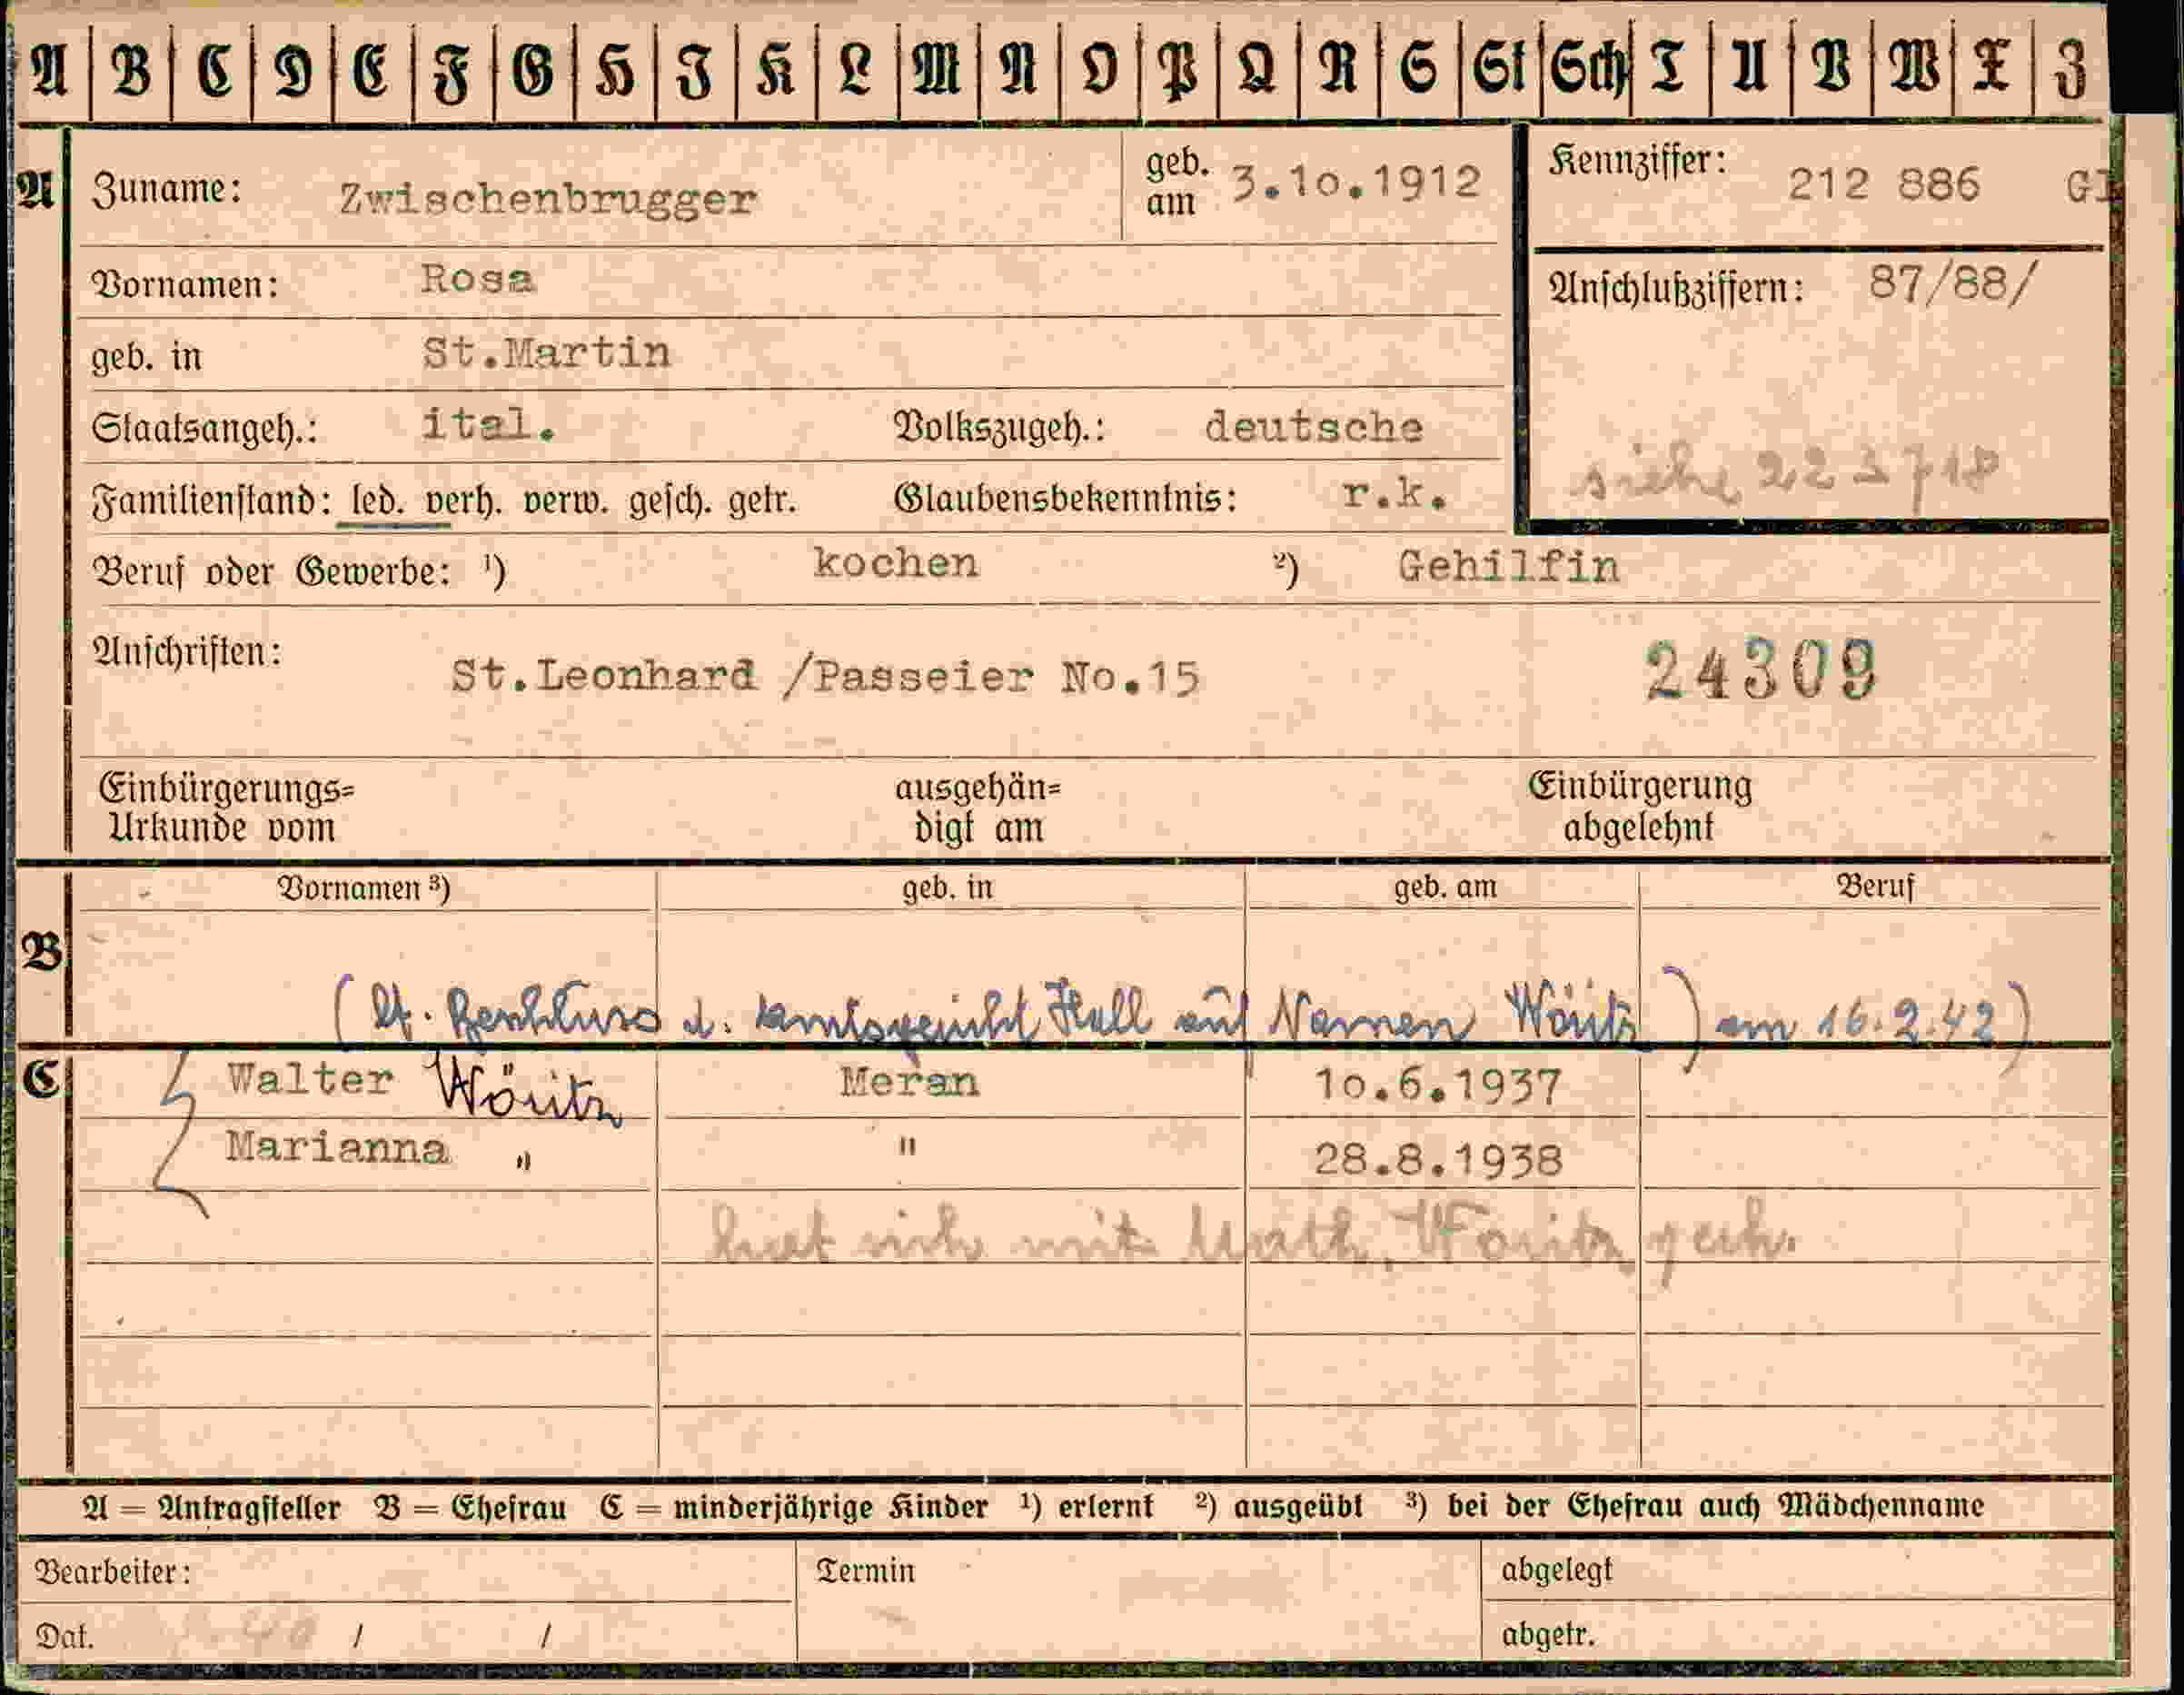 A B C D E F G H I K L M N O P Q R S St Sch T U V W X Z
A Zuname: Zwischenbrugger geb. am 3.10.1912 Kennziffer: 212 886
Vornamen: Rosa Anschlußziffern: 87/88/
geb. in St.Martin
Staatsangeh.: ital. Volkszugeh.: deutsche
siehe 223718
Familienstand: led. verh. verw. gesch. getr. Glaubensbekenntnis: r.k.
Beruf oder Gewerbe: ¹) kochen ²) Gehilfin
Anschriften: St.Leonhard /Passeier No.15 24309
Einbürgerungs= ausgehän= Einbürgerung
Urkunde vom digt am abgelehnt
Vornamen ³) geb. in geb. am Beruf
B
(lt. Beschluss d. Amtsgericht Hall auf Namen Wöritz) am 16.2.42)
C Walter Wöritz Meran 10.6.1937
Marianna " " 28.8.1938
hat sich mit Math. Woritz
A = Antragsteller B = Ehefrau C = minderjährige Kinder ¹) erlernt ²) ausgeübt ³) bei der Ehefrau auch Mädchenname
Bearbeiter: Termin abgelegt
Dat. / / abgetr.